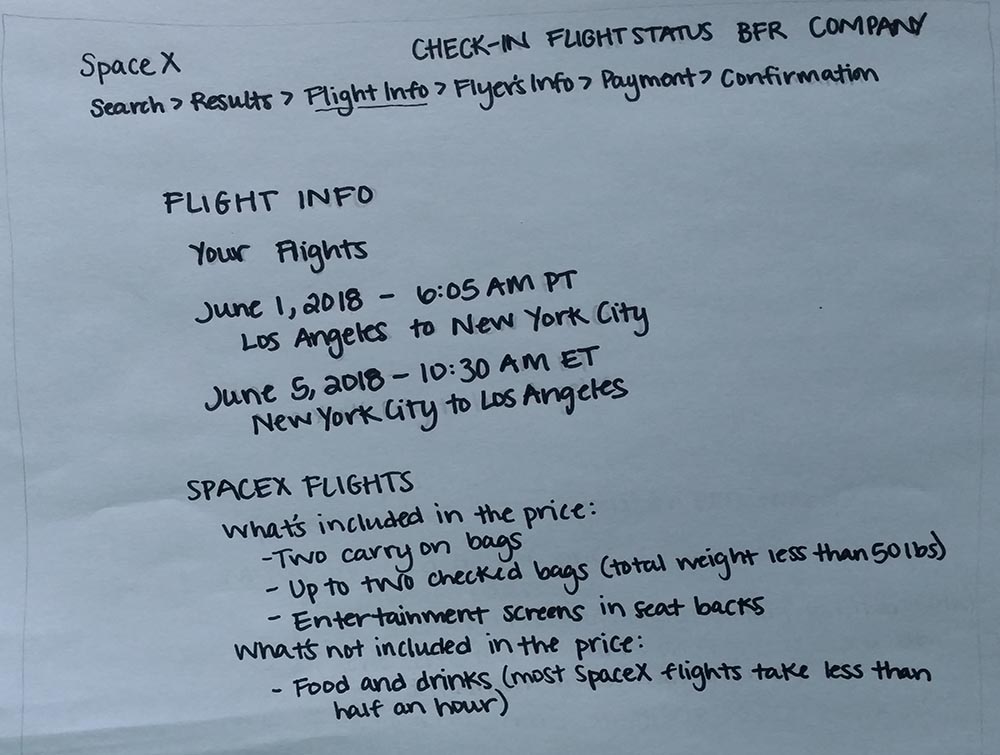 SpaceX
CHECK-IN FLIGHT STATUS BFR COMPANY
Search > Results > Flight Info > Flyer's Info > Payment > Confirmation
FLIGHT INFO
Your Flights
June 1, 2018 - 6:05 AM PT
Los Angeles to New York City
June 5, 2018 - 10:30 AM ET
New York City to Los Angeles
SPACEX FLIGHTS
What's included in the price:
- Two carry on bags
- Up to two checked bags (total weight less than 50 lbs)
- Entertainment screens in seat backs
What's not included in the price:
- Food and drinks (most SpaceX flights take less than
half an hour)